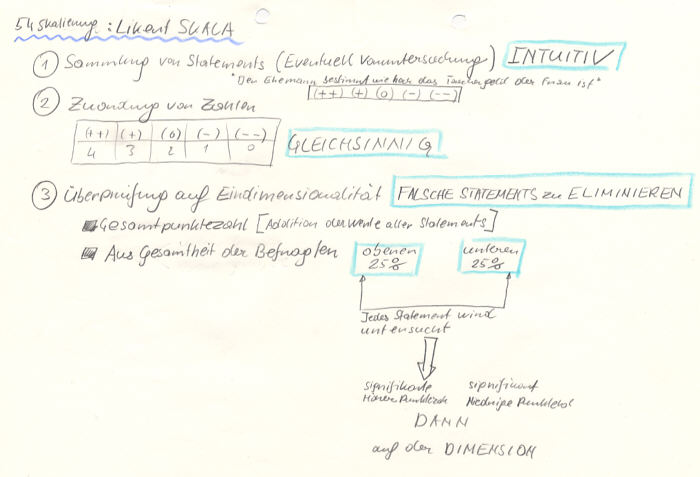 54 Skalierung: Likert SKALA
① Sammlung von Statements (Eventuell Voruntersuchung) INTUITIV
"Der Ehemann bestimmt wie hoch das Taschengeld der Frau ist"
(++) (+) (0) (-) (--)
② Zuordnung von Zahlen
(++) (+) (0) (-) (--)
4 3 2 1 0
GLEICHSINNIG
③ Überprüfung auf Eindimensionalität FALSCHE STATEMENTS zu ELIMINIEREN
Gesamtpunktezahl [Addition der Werte aller Statements]
Aus Gesamtheit der Befragten obenen 25% unteren 25%
Jedes Statement wird
untersucht
signifikante signifikant
Höhere Punktezahl Niedrige Punktezahl
DANN
auf der DIMENSION